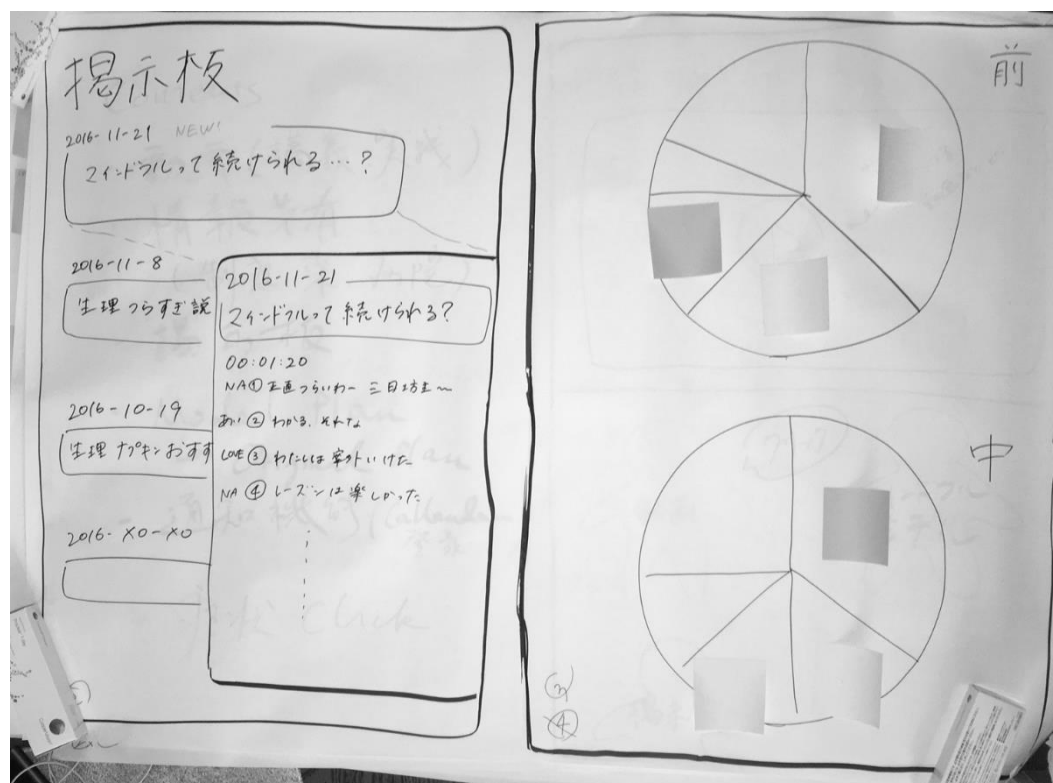 掲示板
2016-11-21 NEW!
マインドフルって続けられる…?
2016-11-8
生理つらすぎ説
2016-10-19
生理ナプキンおすす
2016-XO-XO
2016-11-21
マインドフルって続けられる?
00:01:20
NA① 正直つらいわー 三日坊主〜
あい② わかる、それな
LOVE③ わたしは案外いけた
NA④ レーズンは楽しかった
前
中
③
④